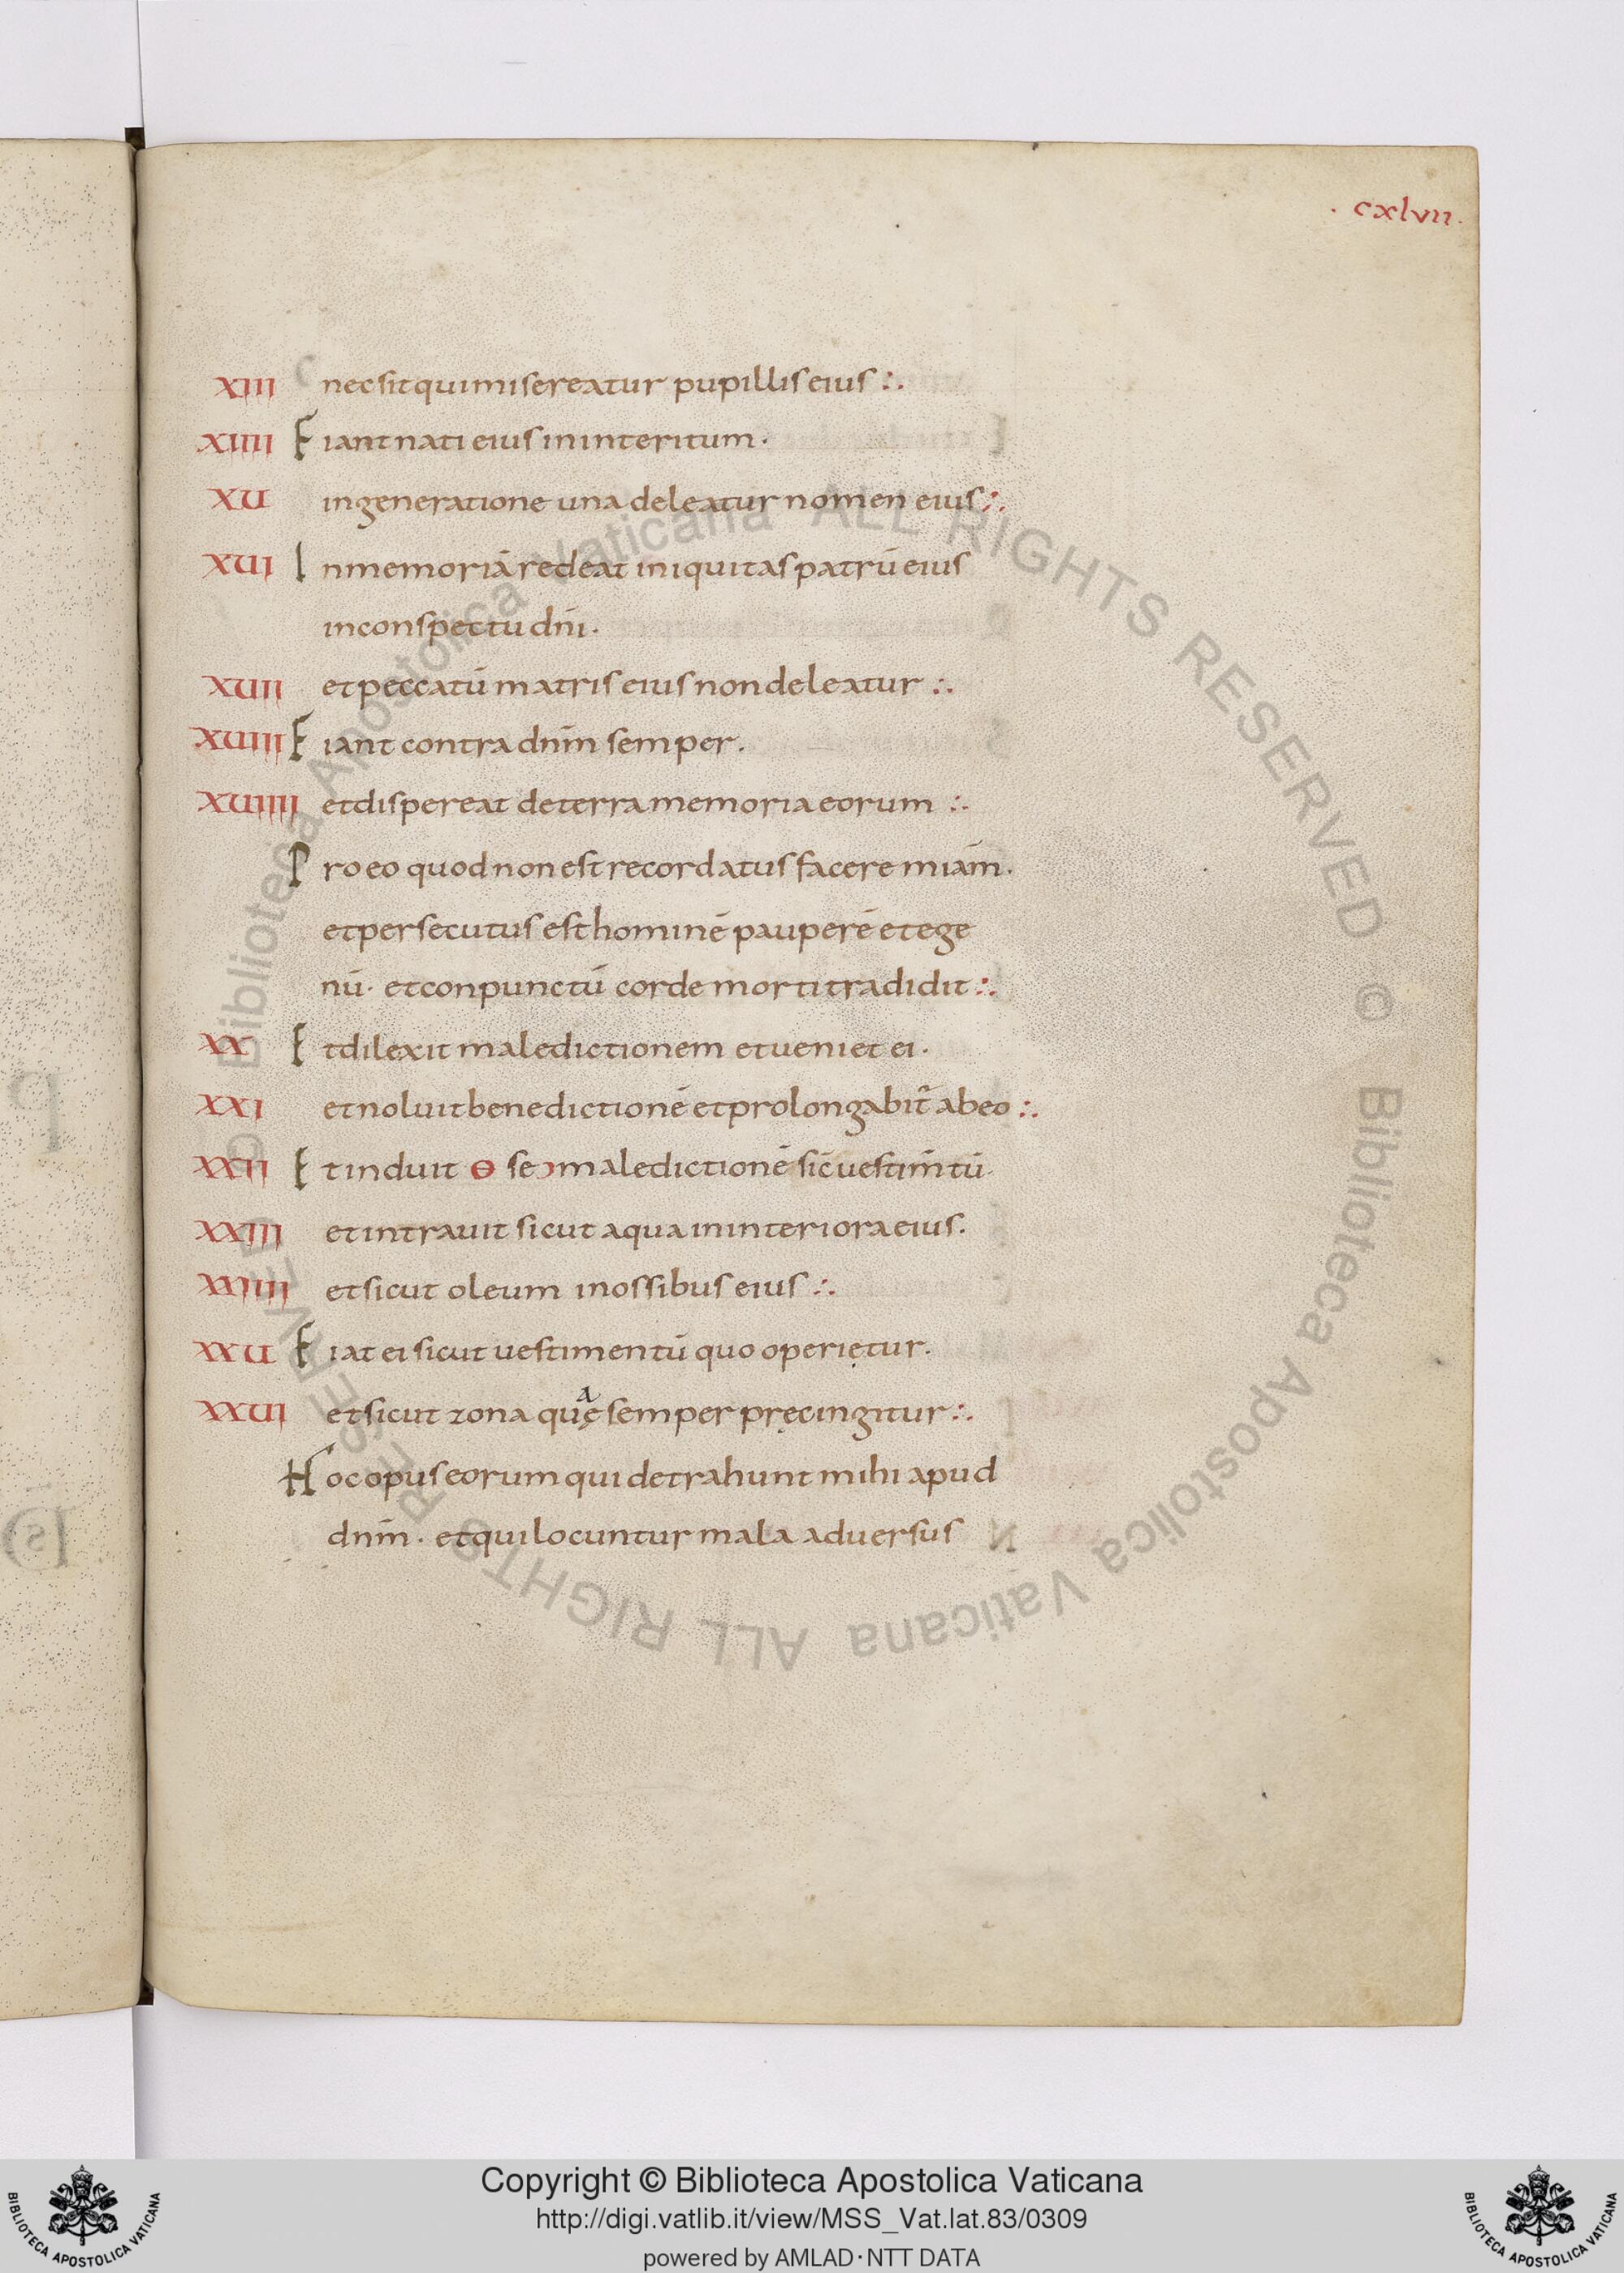 . cxlvii.
XIII nec sit qui misereatur pupillis eius :.
XIIII Fiant nati eius in interitum.
XU in generatione una deleatur nomen eius :.
XUI In memoriā redeat iniquitas patrū eius
in conspectu dn̄i.
XUII et peccatū matris eius non deleatur :.
XUIII Fiant contra dnm̄ semper.
XUIIII et dispereat de terra memoria eorum :.
Pro eo quod non est recordatus facere miam̄.
et persecutus est hominē pauperē et ege
nū. et conpunctū corde morti tradidit :.
XX Et dilexit maledictionem et ueniet ei.
XXI et noluit benedictionē et prolongabit̄ ab eo :.
XXII Et induit ɵ se maledictionē sic̄ uestim̄tū.
XXIII et intrauit sicut aqua in interiora eius.
XXIIII et sicut oleum in ossibus eius :.
XXU Fiat ei sicut uestimentū quo operię tur.
XXUI et sicut zona quęͣ semper pręcingitur :.
Hoc opus eorum qui detrahunt mihi apud
dnm̄. et qui locuntur mala aduersus
Biblioteca Apostolica Vaticana ALL RIGHTS RESERVED © Biblioteca Apostolica Vaticana ALL RIGHTS RESERVED ©
Copyright © Biblioteca Apostolica Vaticana
http://digi.vatlib.it/view/MSS_Vat.lat.83/0309
powered by AMLAD·NTT DATA
BIBLIOTECA APOSTOLICA VATICANA
BIBLIOTECA APOSTOLICA VATICANA